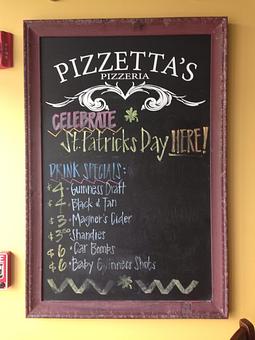 PIZZETTA'S
PIZZERIA
CELEBRATE
St. Patricks Day HERE!
DRINK SPECIALS:
$4- Guinness Draft
$4- Black & Tan
$3- Magner's Cider
$3.50 Shandies
$6- Car Bombs
$6- Baby Guinness Shots